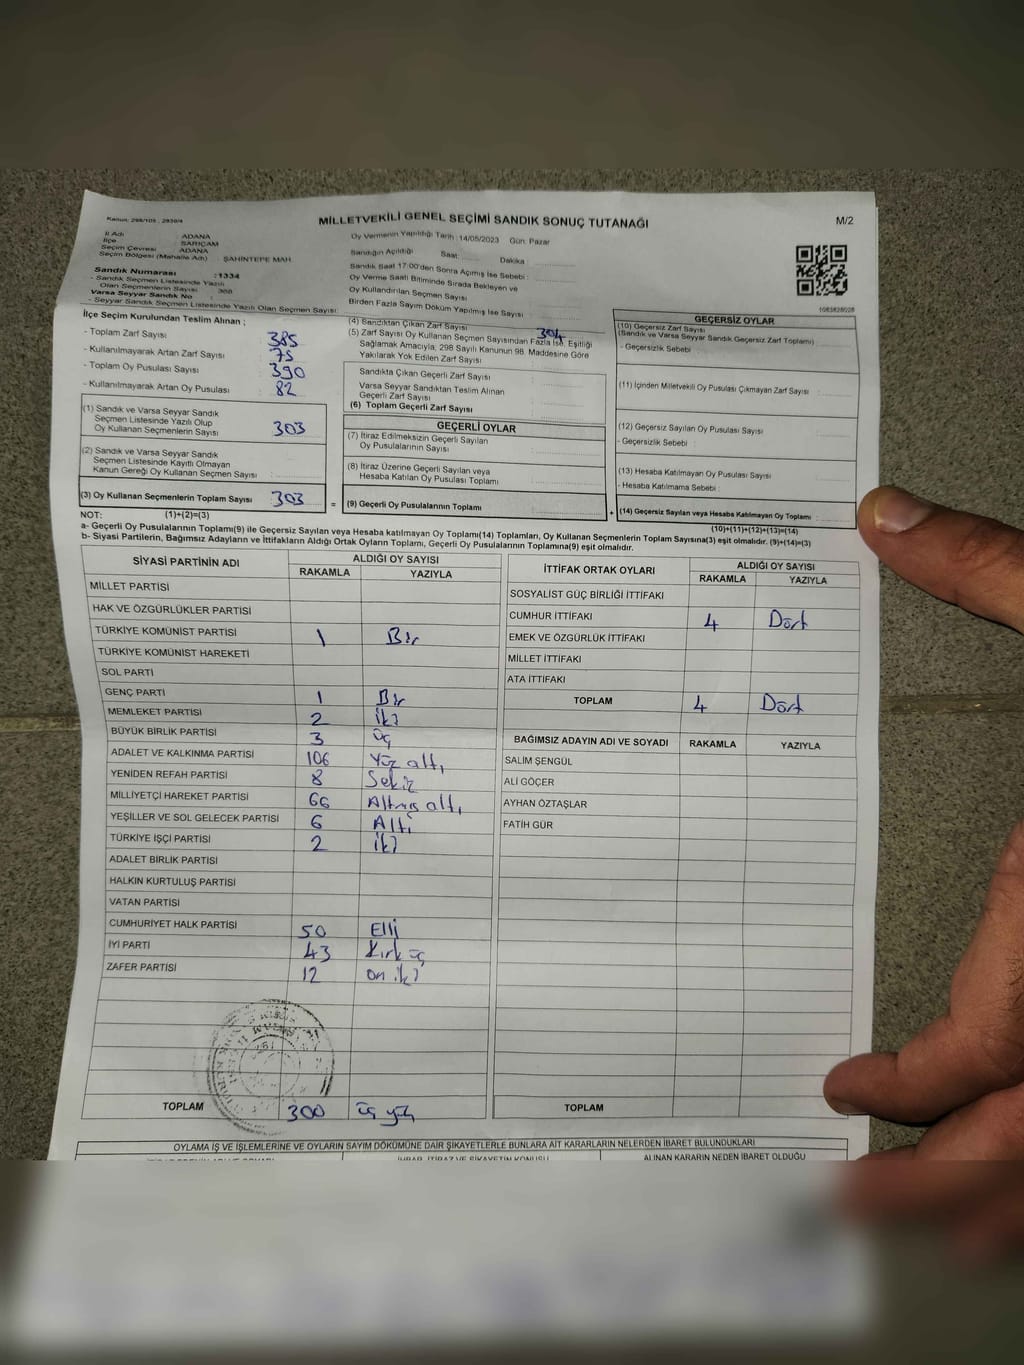 Kanun: 298/105 ; 2839/4
MİLLETVEKİLİ GENEL SEÇİMİ SANDIK SONUÇ TUTANAĞI
M/2
İl Adı : ADANA
İlçe : SARIÇAM
Seçim Çevresi : ADANA
Seçim Bölgesi (Mahalle Adı) : ŞAHİNTEPE MAH.
Sandık Numarası :1334
- Sandık Seçmen Listesinde Yazılı
Olan Seçmenlerin Sayısı :
Varsa Seyyar Sandık No :
- Seyyar Sandık Seçmen Listesinde Yazılı Olan Seçmen Sayısı:
Oy Vermenin Yapıldığı Tarih : 14/05/2023 Gün: Pazar
Sandığın Açıldığı Saat: Dakika :
Sandık Saat 17:00'den Sonra Açımış İse Sebebi :
Oy Verme Saati Bitiminde Sırada Bekleyen ve
Oy Kullandırılan Seçmen Sayısı
Birden Fazla Sayım Döküm Yapılmış İse Sayısı
İlçe Seçim Kurulundan Teslim Alınan ;
- Toplam Zarf Sayısı : 385
- Kullanılmayarak Artan Zarf Sayısı : 75
- Toplam Oy Pusulası Sayısı : 390
- Kullanılmayarak Artan Oy Pusulası : 82
(1) Sandık ve Varsa Seyyar Sandık
Seçmen Listesinde Yazılı Olup
Oy Kullanan Seçmenlerin Sayısı : 303
(2) Sandık ve Varsa Seyyar Sandık
Seçmen Listesinde Kayıtlı Olmayan
Kanun Gereği Oy Kullanan Seçmen Sayısı :
(3) Oy Kullanan Seçmenlerin Toplam Sayısı : 303
(1)+(2)=(3)
(4) Sandıktan Çıkan Zarf Sayısı : 304
(5) Zarf Sayısı Oy Kullanan Seçmen Sayısından Fazla İse, Eşitliği
Sağlamak Amacıyla, 298 Sayılı Kanunun 98. Maddesine Göre
Yakılarak Yok Edilen Zarf Sayısı
Sandıkta Çıkan Geçerli Zarf Sayısı
Varsa Seyyar Sandıktan Teslim Alınan
Geçerli Zarf Sayısı
(6) Toplam Geçerli Zarf Sayısı
GEÇERLİ OYLAR
(7) İtiraz Edilmeksizin Geçerli Sayılan
Oy Pusulalarının Sayısı
(8) İtiraz Üzerine Geçerli Sayılan veya
Hesaba Katılan Oy Pusulası Toplamı
= (9) Geçerli Oy Pusulalarının Toplamı +
GEÇERSİZ OYLAR
(10) Geçersiz Zarf Sayısı
(Sandık ve Varsa Seyyar Sandık Geçersiz Zarf Toplamı)
- Geçersizlik Sebebi :
(11) İçinden Milletvekili Oy Pusulası Çıkmayan Zarf Sayısı :
(12) Geçersiz Sayılan Oy Pusulası Sayısı :
- Geçersizlik Sebebi :
(13) Hesaba Katılmayan Oy Pusulası Sayısı :
- Hesaba Katılmama Sebebi :
(14) Geçersiz Sayılan veya Hesaba Katılmayan Oy Toplamı :
(10)+(11)+(12)+(13)=(14)
NOT:
a- Geçerli Oy Pusulalarının Toplamı(9) ile Geçersiz Sayılan veya Hesaba katılmayan Oy Toplamı(14) Toplamları, Oy Kullanan Seçmenlerin Toplam Sayısına(3) eşit olmalıdır. (9)+(14)=(3)
b- Siyasi Partilerin, Bağımsız Adayların ve İttifakların Aldığı Ortak Oyların Toplamı, Geçerli Oy Pusulalarının Toplamına(9) eşit olmalıdır.
SİYASİ PARTİNİN ADI ALDIĞI OY SAYISI
RAKAMLA YAZIYLA
MİLLET PARTİSİ
HAK VE ÖZGÜRLÜKLER PARTİSİ
TÜRKİYE KOMÜNİST PARTİSİ 1 Bir
TÜRKİYE KOMÜNİST HAREKETİ
SOL PARTİ
GENÇ PARTİ 1 Bir
MEMLEKET PARTİSİ 2 iki
BÜYÜK BİRLİK PARTİSİ 3 üç
ADALET VE KALKINMA PARTİSİ 106 Yüz altı
YENİDEN REFAH PARTİSİ 8 Sekiz
MİLLİYETÇİ HAREKET PARTİSİ 66 Altmış altı
YEŞİLLER VE SOL GELECEK PARTİSİ 6 Altı
TÜRKİYE İŞÇİ PARTİSİ 2 iki
ADALET BİRLİK PARTİSİ
HALKIN KURTULUŞ PARTİSİ
VATAN PARTİSİ
CUMHURİYET HALK PARTİSİ 50 Elli
İYİ PARTİ 43 Kırk üç
ZAFER PARTİSİ 12 on iki
TOPLAM 300 üç yüz
İTTİFAK ORTAK OYLARI ALDIĞI OY SAYISI
RAKAMLA YAZIYLA
SOSYALİST GÜÇ BİRLİĞİ İTTİFAKI
CUMHUR İTTİFAKI 4 Dört
EMEK VE ÖZGÜRLÜK İTTİFAKI
MİLLET İTTİFAKI
ATA İTTİFAKI
TOPLAM 4 Dört
BAĞIMSIZ ADAYIN ADI VE SOYADI RAKAMLA YAZIYLA
SALİM ŞENGÜL
ALİ GÖÇER
AYHAN ÖZTAŞLAR
FATİH GÜR
TOPLAM
OYLAMA İŞ VE İŞLEMLERİNE VE OYLARIN SAYIM DÖKÜMÜNE DAİR ŞİKAYETLERLE BUNLARA AİT KARARLARIN NELERDEN İBARET BULUNDUKLARI
İHBAR, İTİRAZ VE ŞİKAYETİN KONUSU
ALINAN KARARIN NEDEN İBARET OLDUĞU